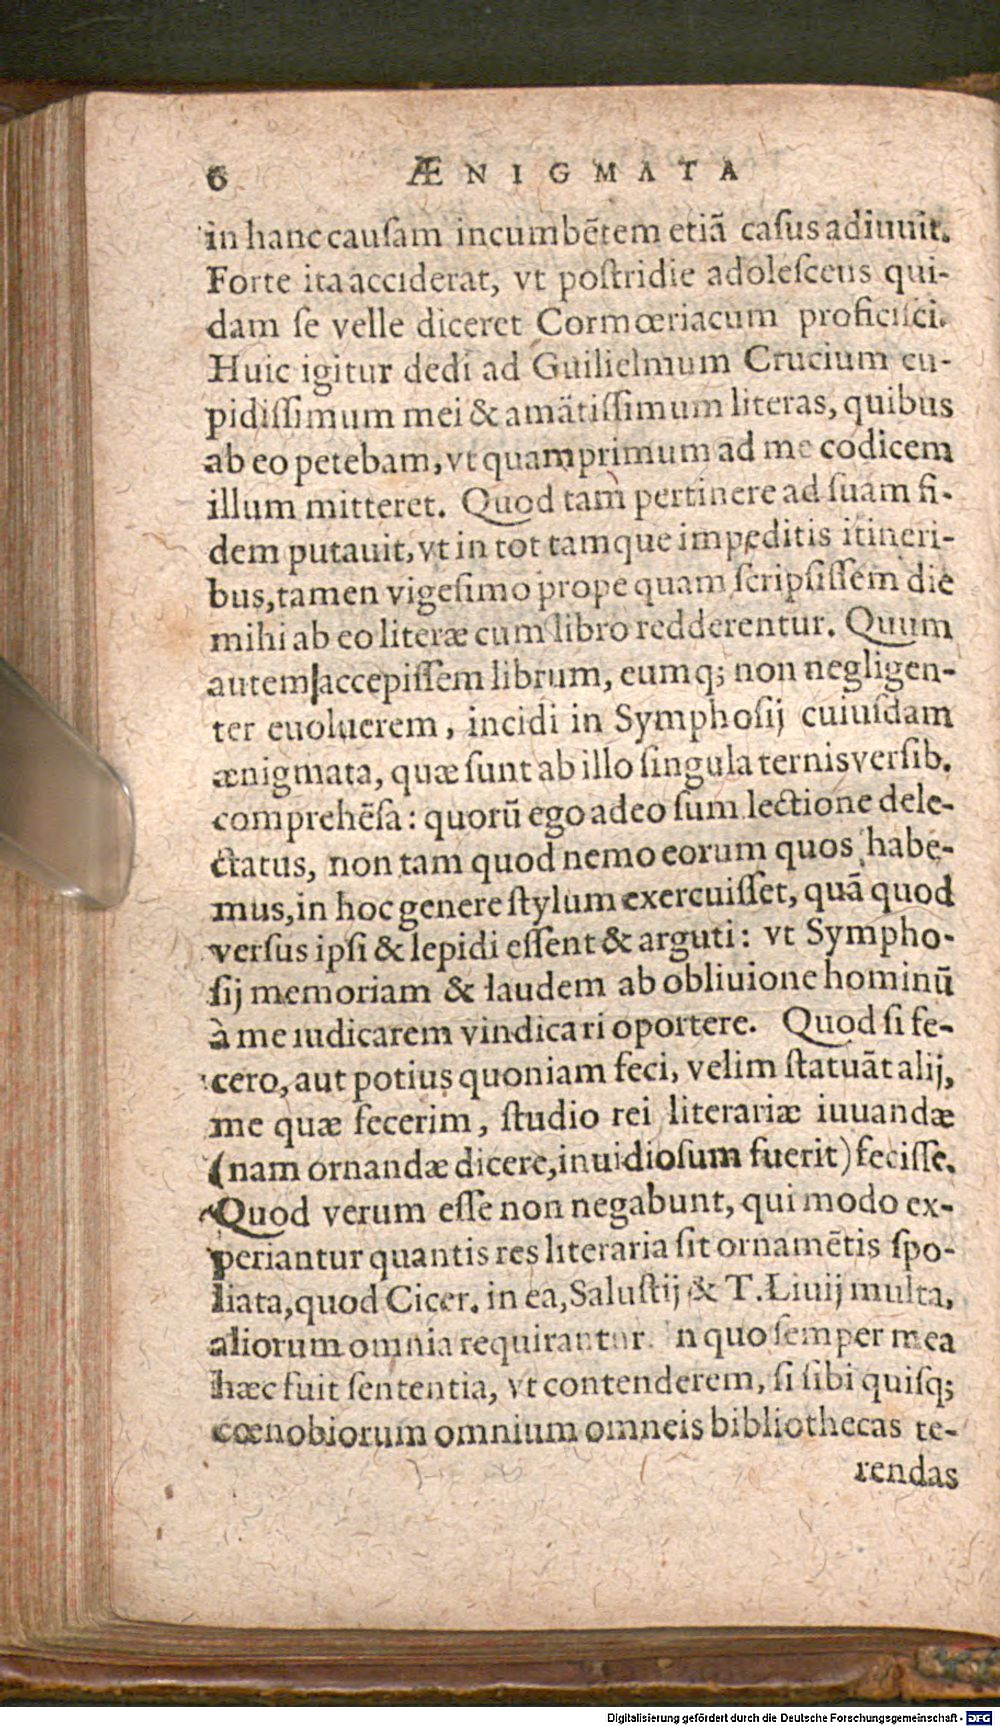 6 ÆNIGMATA
in hanc causam incumbẽtem etiã casus adiuuit.
Forte ita acciderat, vt postridie adolescens qui-
dam se velle diceret Cormœriacum proficisci.
Huic igitur dedi ad Guilielmum Crucium cu-
pidissimum mei & amãtissimum literas, quibus
ab eo petebam, vt quamprimum ad me codicem
illum mitteret. Quod tam pertinere ad suam fi-
dem putauit, vt in tot tamque impeditis itineri-
bus, tamen vigesimo prope quam scripsissem die
mihi ab eo literæ cum libro redderentur. Quum
autem accepissem librum, eumq; non negligen-
ter euoluerem, incidi in Symphosij cuiusdam
ænigmata, quæ sunt ab illo singula ternis versib.
comprehẽsa: quorũ ego adeo sum lectione dele-
ctatus, non tam quod nemo eorum quos habe-
mus, in hoc genere stylum exercuisset, quã quod
versus ipsi & lepidi essent & arguti: vt Sympho-
sij memoriam & laudem ab obliuione hominũ
à me iudicarem vindicari oportere. Quod si fe-
cero, aut potius quoniam feci, velim statuãt alij,
me quæ fecerim, studio rei literariæ iuuandæ
(nam ornandæ dicere, inuidiosum fuerit) fecisse.
Quod verum esse non negabunt, qui modo ex-
periantur quantis res literaria sit ornamẽtis spo-
liata, quod Cicer. in ea, Salustij & T. Liuij multa,
aliorum omnia requirantur. n quo semper mea
hæc fuit sententia, vt contenderem, si sibi quisq;
cœnobiorum omnium omneis bibliothecas te-
rendas
Digitalisierung gefördert durch die Deutsche Forschungsgemeinschaft - DFG